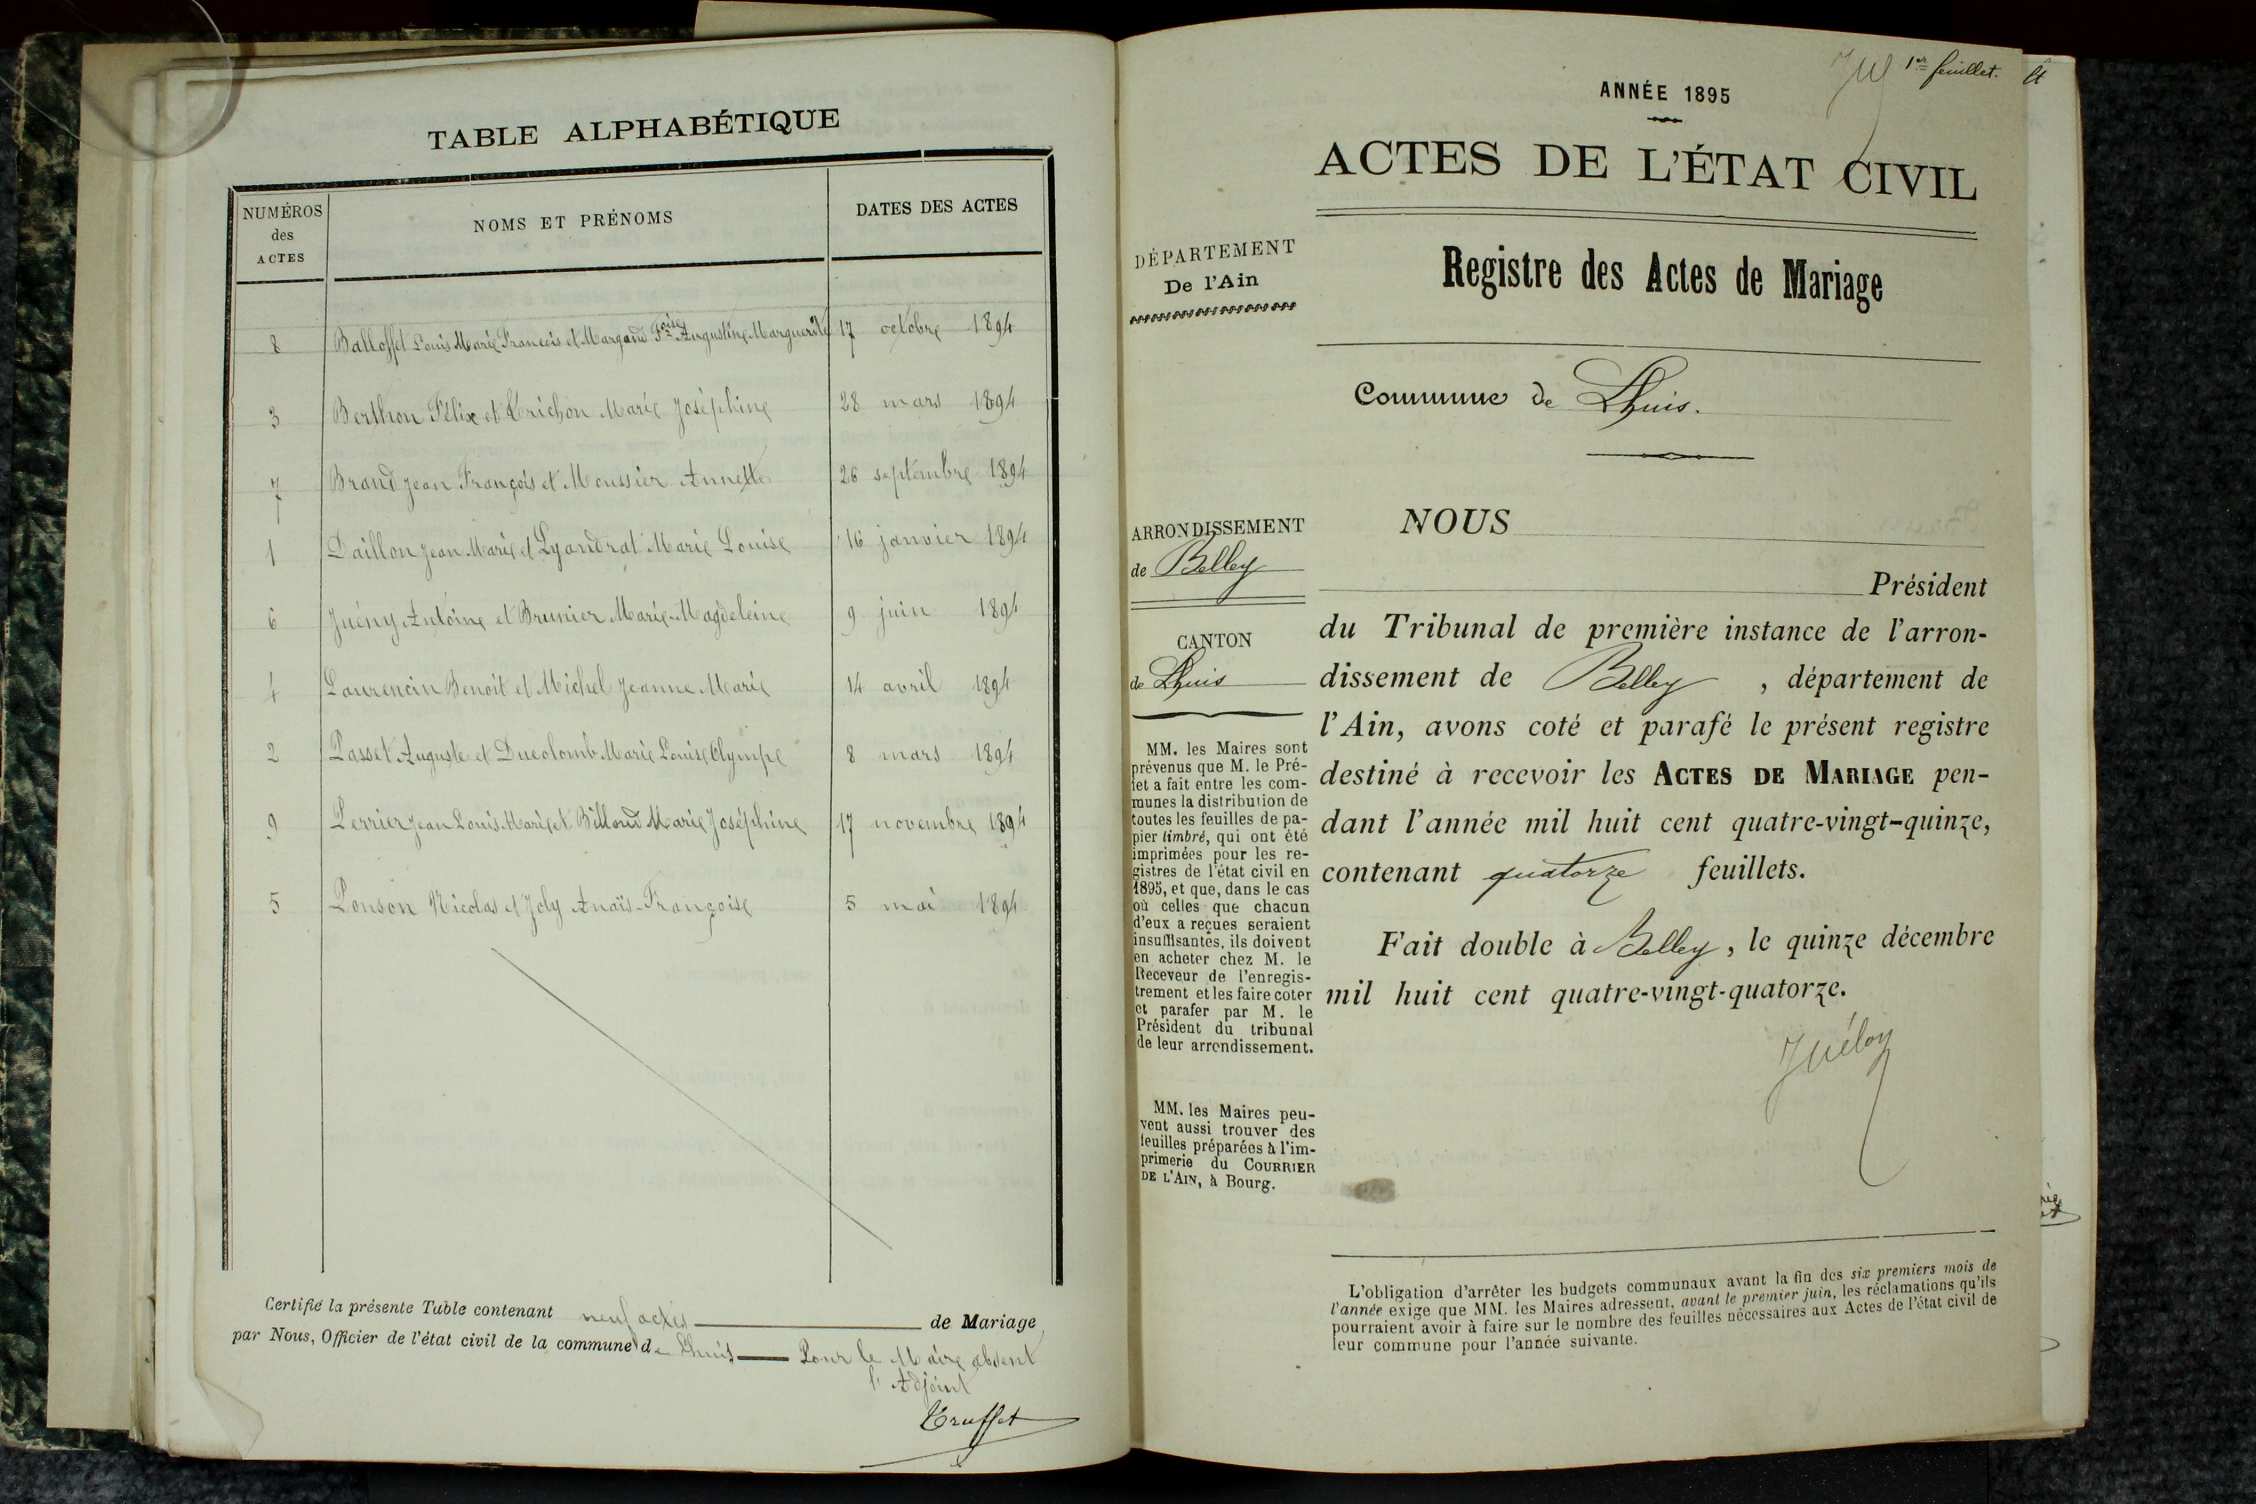 TABLE ALPHABÉTIQUE
NUMÉROS
des
ACTES
NOMS ET PRÉNOMS
DATES DES ACTES
8 Balloffet Louis Marie Francois et Margand Fçoise Augustine Marguerite 17 octobre 1894
3 Berthon Félix et Trichon Marie Joséphine 28 mars 1894
7 Brand Jean François et Moussier Annette 26 septembre 1894
1 Daillon Jean Marie et Lyandrat Marie Louise 16 janvier 1894
6 Juény Antoine et Brunier Marie-Magdeleine 9 juin 1894
4 Laurencin Benoit et Michel Jeanne Marie 14 avril 1894
2 Passet Auguste et Ducolomb Marie Louise Olympe 8 mars 1894
9 Perrier Jean Louis Marie et Billoud Marie Joséphine 17 novembre 1894
5 Ponson Nicolas et Joly Anaïs-Françoise 5 mai 1894
Certifié la présente Table contenant neuf actes de Mariage
par Nous, Officier de l'état civil de la commune de Lhuis Pour le Maire absent
l'Adjoint
Truffet
1er feuillet.
ANNÉE 1895
ACTES DE L'ÉTAT CIVIL
DÉPARTEMENT
De l'Ain
Registre des Actes de Mariage
Commune de Lhuis.
ARRONDISSEMENT
de Belley
CANTON
de Lhuis
MM. les Maires sont
prévenus que M. le Pré-
fet a fait entre les com-
munes la distribution de
toutes les feuilles de pa-
pier timbré, qui ont été
imprimées pour les re-
gistres de l'état civil en
1895, et que, dans le cas
où celles que chacun
d'eux a reçues seraient
insuffisantes, ils doivent
en acheter chez M. le
Receveur de l'enregis-
trement et les faire coter
et parafer par M. le
Président du tribunal
de leur arrondissement.
MM. les Maires peu-
vent aussi trouver des
feuilles préparées à l'im-
primerie du COURRIER
DE L'AIN, à Bourg.
NOUS
Président
du Tribunal de première instance de l'arron-
dissement de Belley, département de
l'Ain, avons coté et parafé le présent registre
destiné à recevoir les ACTES DE MARIAGE pen-
dant l'année mil huit cent quatre-vingt-quinze,
contenant quatorze feuillets.
Fait double à Belley, le quinze décembre
mil huit cent quatre-vingt-quatorze.
L'obligation d'arrêter les budgets communaux avant la fin des six premiers mois de
l'année exige que MM. les Maires adressent, avant le premier juin, les réclamations qu'ils
pourraient avoir à faire sur le nombre des feuilles nécessaires aux Actes de l'état civil de
leur commune pour l'année suivante.